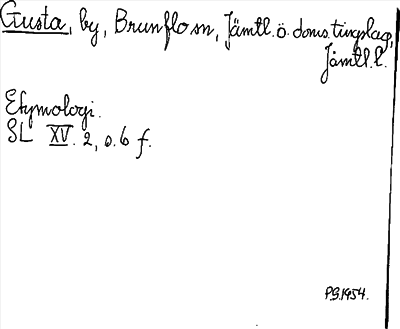 Gusta, by, Brunflo sn, Jämtl. ö. doms. tingslag,
Jämtl. l.
Etymologi.
SL XV. 2, s. 6 f.
P.S. 1954.